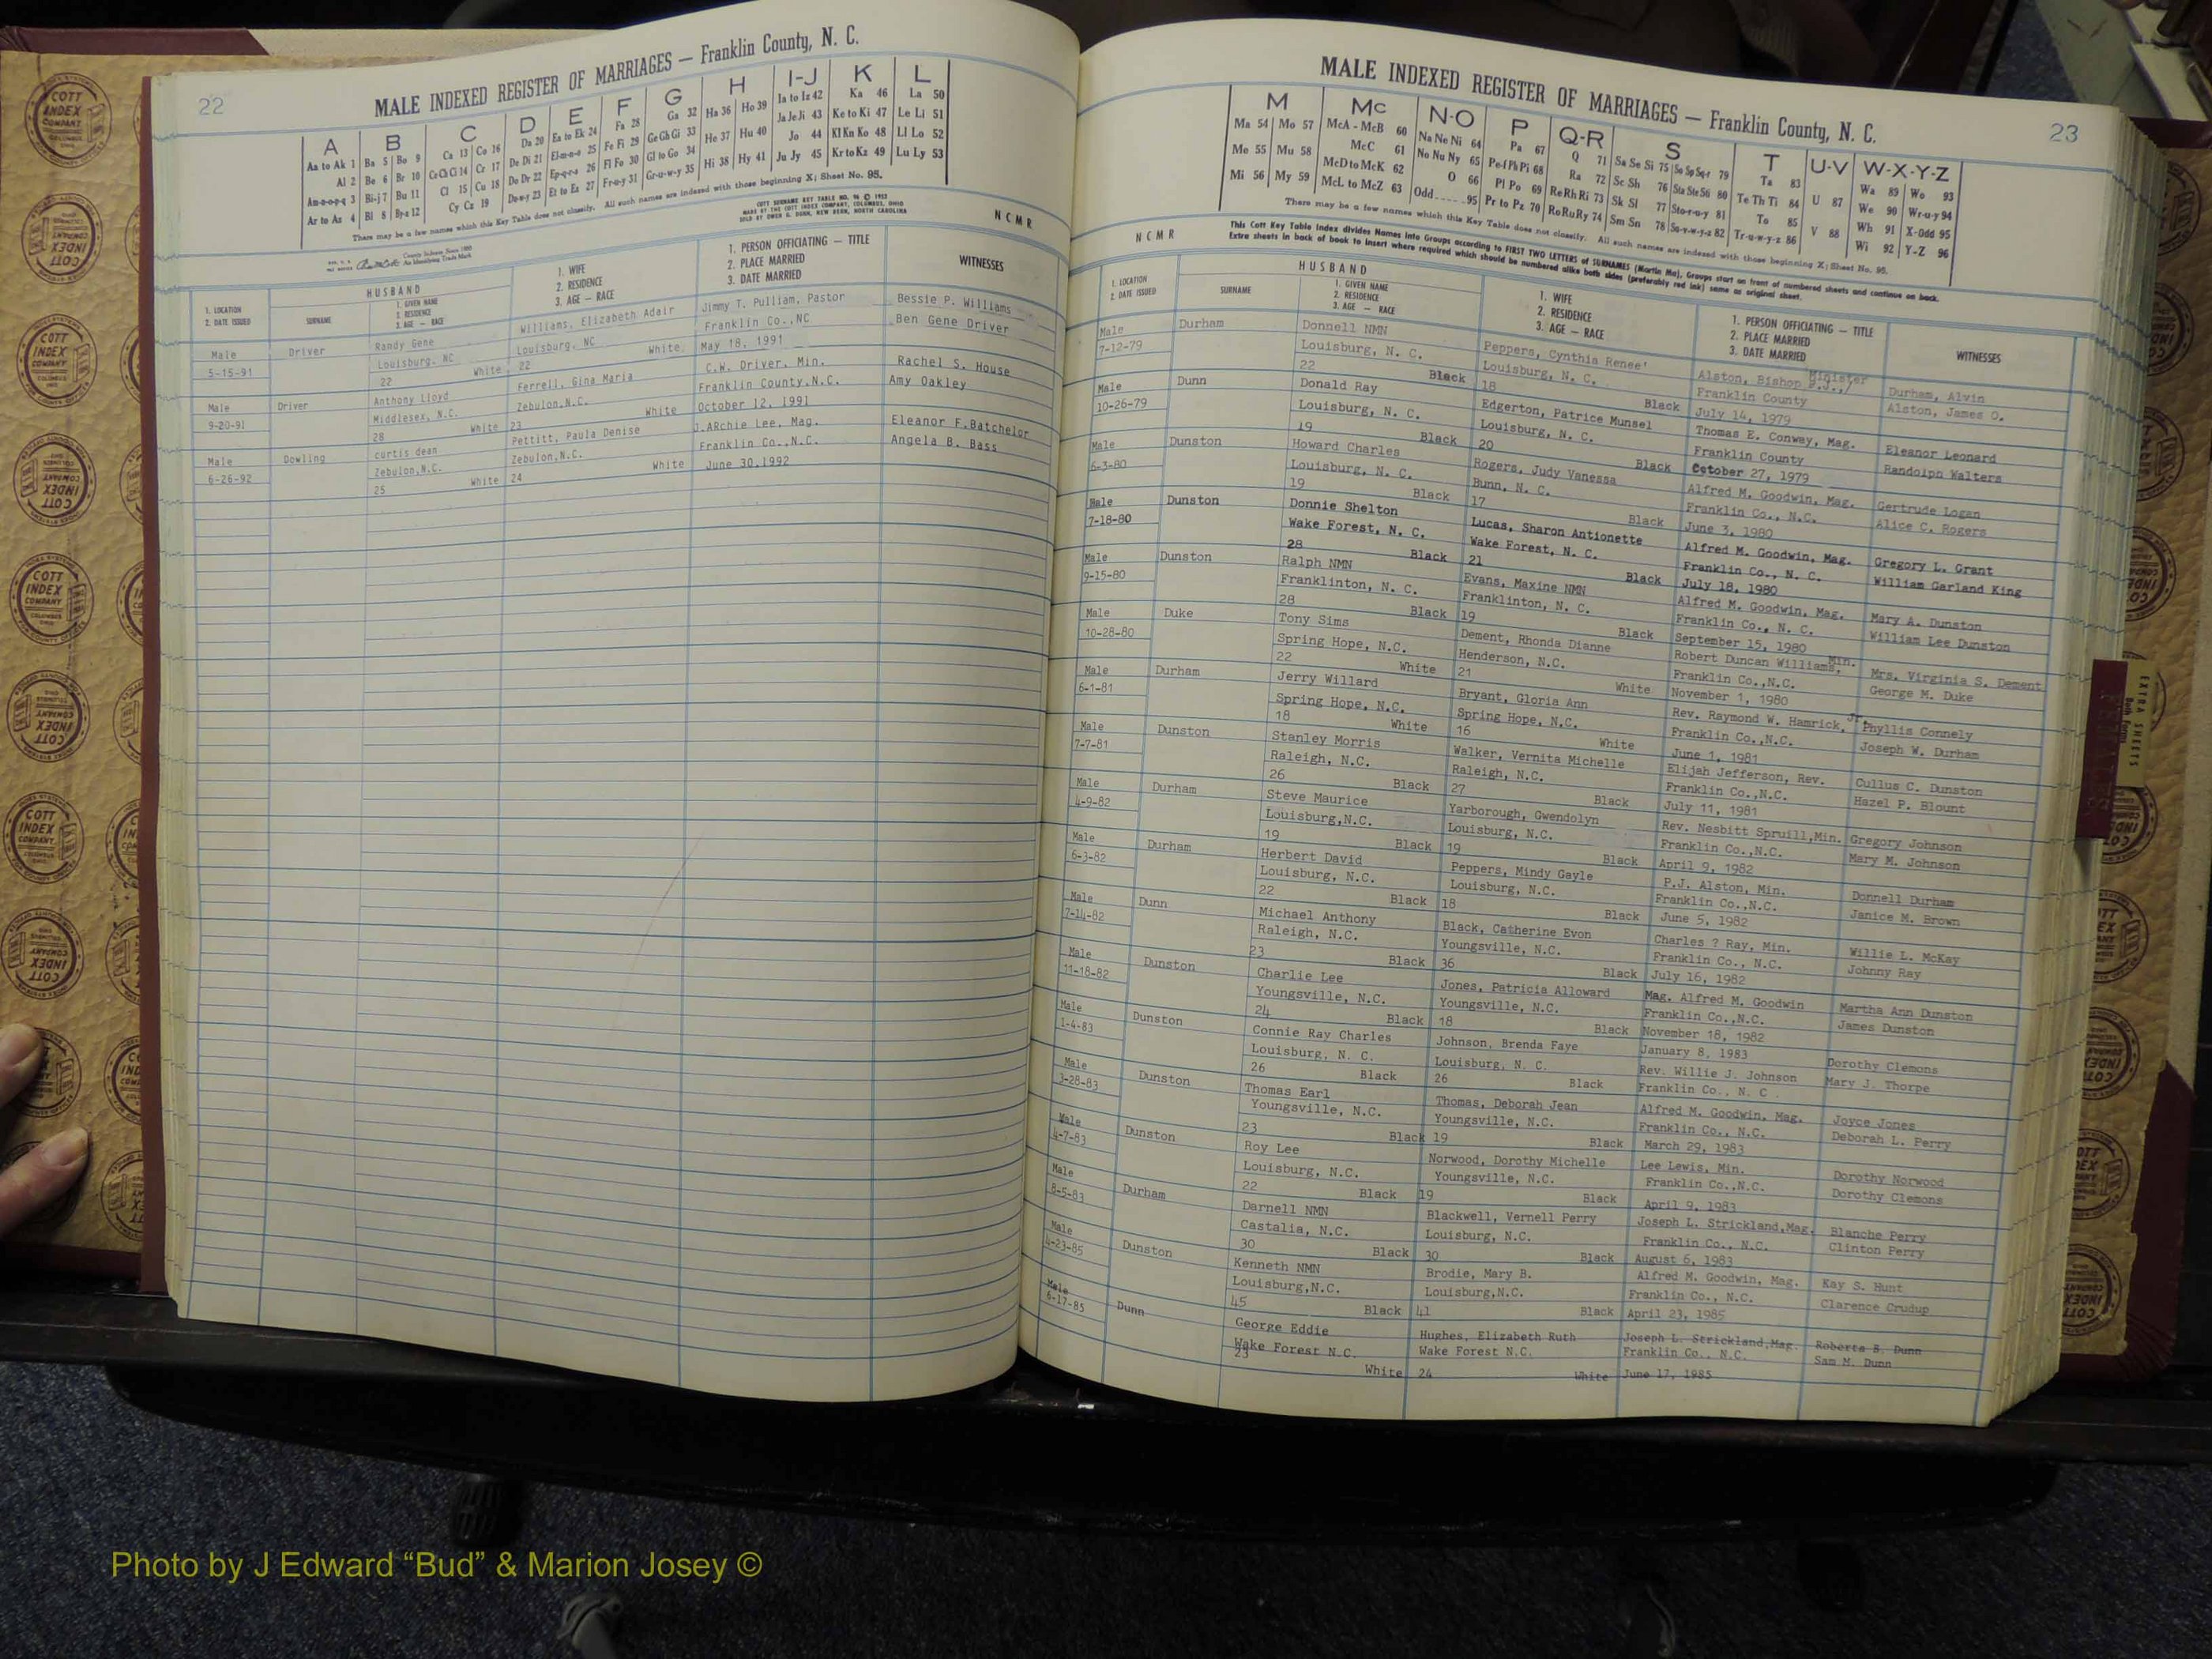 22
MALE INDEXED REGISTER OF MARRIAGES — Franklin County, N. C.
A B C D E F G H I-J K L
Aa to Ak 1 Ba 5 Bo 9 Ca 13 Co 16 Da 20 Ea to Ek 24 Fa 28 Ga 32 Ha 36 Ho 39 Ia to Iz 42 Ka 46 La 50
Al 2 Be 6 Br 10 Ce Ch Ci 14 Cr 17 De Di 21 El-m-n-o 25 Fe Fi 29 Ge Gh Gi 33 He 37 Hu 40 Ja Je Ji 43 Ke to Ki 47 Le Li 51
Am-n-o-p-q 3 Bi-j 7 Bu 11 Cl 15 Cu 18 Do Dr 22 Ep-q-r-s 26 Fl Fo 30 Gl to Go 34 Hi 38 Hy 41 Jo 44 Kl Kn Ko 48 Ll Lo 52
Ar to Az 4 Bl 8 By-z 12 Cy Cz 19 Du-w-y 23 Et to Ez 27 Fr-u-y 31 Gr-u-w-y 35 Ju Jy 45 Kr to Kz 49 Lu Ly 53
There may be a few names which this Key Table does not classify. All such names are indexed with those beginning X; Sheet No. 95.
COTT SURNAME KEY TABLE NO. 96 © 1953
MADE BY THE COTT INDEX COMPANY, COLUMBUS, OHIO
SOLD BY OWEN G. DUNN, NEW BERN, NORTH CAROLINA
N C M R
HUSBAND
1. LOCATION 2. DATE ISSUED
SURNAME
1. GIVEN NAME 2. RESIDENCE 3. AGE — RACE
1. WIFE 2. RESIDENCE 3. AGE — RACE
1. PERSON OFFICIATING — TITLE 2. PLACE MARRIED 3. DATE MARRIED
WITNESSES
Male Driver Randy Gene Williams, Elizabeth Adair Jimmy T. Pulliam, Pastor Bessie P. Williams
5-15-91 Louisburg, NC Louisburg, NC Franklin Co.,NC Ben Gene Driver
22 White 22 White May 18, 1991
Male Driver Anthony Lloyd Ferrell, Gina Maria C.W. Driver, Min. Rachel S. House
9-20-91 Middlesex, N.C. Zebulon,N.C. Franklin County,N.C. Amy Oakley
28 White 23 White October 12, 1991
Male Dowling curtis dean Pettitt, Paula Denise J.ARchie Lee, Mag. Eleanor F.Batchelor
6-26-92 Zebulon,N.C. Zebulon,N.C. Franklin Co.,N.C. Angela B. Bass
25 White 24 White June 30,1992
23
MALE INDEXED REGISTER OF MARRIAGES — Franklin County, N. C.
M Mc N-O P Q-R S T U-V W-X-Y-Z
Ma 54 Mo 57 McA - McB 60 Na Ne Ni 64 Pa 67 Q 71 Sa Se Si 75 So Sp Sq-r 79 Ta 83 U 87 Wa 89 Wo 93
Me 55 Mu 58 McC 61 No Nu Ny 65 Pe-f Ph Pi 68 Ra 72 Sc Sh 76 Sta Ste Sti 80 Te Th Ti 84 V 88 We 90 Wr-u-y 94
Mi 56 My 59 McD to McK 62 O 66 Pl Po 69 Re Rh Ri 73 Sk Sl 77 Sto-r-u-y 81 To 85 Wh 91 X-Odd 95
McL to McZ 63 Odd 95 Pr to Pz 70 Ro Ru Ry 74 Sm Sn 78 Su-v-w-y-z 82 Tr-u-w-y-z 86 Wi 92 Y-Z 96
There may be a few names which this Key Table does not classify. All such names are indexed with those beginning X; Sheet No. 95.
N C M R
This Cott Key Table Index divides Names into Groups according to FIRST TWO LETTERS of SURNAMES (Martin Ma), Groups start on front of numbered sheets and continue on back.
Extra sheets in back of book to insert where required which should be numbered alike both sides (preferably red ink) same as original sheet.
HUSBAND
1. LOCATION 2. DATE ISSUED
SURNAME
1. GIVEN NAME 2. RESIDENCE 3. AGE — RACE
1. WIFE 2. RESIDENCE 3. AGE — RACE
1. PERSON OFFICIATING — TITLE 2. PLACE MARRIED 3. DATE MARRIED
WITNESSES
Male Durham Donnell NMN Peppers, Cynthia Renee' Alston, Bishop P.J.,/ Minister Durham, Alvin
7-12-79 Louisburg, N. C. Louisburg, N. C. Franklin County Alston, James O.
22 Black 18 Black July 14, 1979
Male Dunn Donald Ray Edgerton, Patrice Munsel Thomas E. Conway, Mag. Eleanor Leonard
10-26-79 Louisburg, N. C. Louisburg, N. C. Franklin County Randolph Walters
19 Black 20 Black October 27, 1979
Male Dunston Howard Charles Rogers, Judy Vanessa Alfred M. Goodwin, Mag. Gertrude Logan
6-3-80 Louisburg, N. C. Bunn, N. C. Franklin Co., N.C. Alice C. Rogers
19 Black 17 Black June 3, 1980
Male Dunston Donnie Shelton Lucas, Sharon Antionette Alfred M. Goodwin, Mag. Gregory L. Grant
7-18-80 Wake Forest, N. C. Wake Forest, N. C. Franklin Co., N. C. William Garland King
28 Black 21 Black July 18, 1980
Male Dunston Ralph NMN Evans, Maxine NMN Alfred M. Goodwin, Mag. Mary A. Dunston
9-15-80 Franklinton, N. C. Franklinton, N. C. Franklin Co., N. C. William Lee Dunston
28 Black 19 Black September 15, 1980
Male Duke Tony Sims Dement, Rhonda Dianne Robert Duncan Williams, Min. Mrs. Virginia S. Dement
10-28-80 Spring Hope, N.C. Henderson, N.C. Franklin Co.,N.C. George M. Duke
22 White 21 White November 1, 1980
Male Durham Jerry Willard Bryant, Gloria Ann Rev. Raymond W. Hamrick, Jr. Phyllis Connely
6-1-81 Spring Hope, N.C. Spring Hope, N.C. Franklin Co.,N.C. Joseph W. Durham
18 White 16 White June 1, 1981
Male Dunston Stanley Morris Walker, Vernita Michelle Elijah Jefferson, Rev. Cullus C. Dunston
7-7-81 Raleigh, N.C. Raleigh, N.C. Franklin Co.,N.C. Hazel P. Blount
26 Black 27 Black July 11, 1981
Male Durham Steve Maurice Yarborough, Gwendolyn Rev. Nesbitt Spruill,Min. Gregory Johnson
4-9-82 Louisburg,N.C. Louisburg, N.C. Franklin Co.,N.C. Mary M. Johnson
19 Black 19 Black April 9, 1982
Male Durham Herbert David Peppers, Mindy Gayle P.J. Alston, Min. Donnell Durham
6-3-82 Louisburg, N.C. Louisburg, N.C. Franklin Co.,N.C. Janice M. Brown
22 Black 18 Black June 5, 1982
Male Dunn Michael Anthony Black, Catherine Evon Charles ? Ray, Min. Willie L. McKay
7-14-82 Raleigh, N.C. Youngsville, N.C. Franklin Co., N.C. Johnny Ray
23 Black 36 Black July 16, 1982
Male Dunston Charlie Lee Jones, Patricia Alloward Mag. Alfred M. Goodwin Martha Ann Dunston
11-18-82 Youngsville, N.C. Youngsville, N.C. Franklin Co.,N.C. James Dunston
24 Black 18 Black November 18, 1982
Male Dunston Connie Ray Charles Johnson, Brenda Faye January 8, 1983 Dorothy Clemons
1-4-83 Louisburg, N. C. Louisburg, N. C. Rev. Willie J. Johnson Mary J. Thorpe
26 Black 26 Black Franklin Co., N. C .
Male Dunston Thomas Earl Thomas, Deborah Jean Alfred M. Goodwin, Mag. Joyce Jones
3-28-83 Youngsville, N.C. Youngsville, N.C. Franklin Co., N.C. Deborah L. Perry
23 Black 19 Black March 29, 1983
Male Dunston Roy Lee Norwood, Dorothy Michelle Lee Lewis, Min. Dorothy Norwood
4-7-83 Louisburg, N.C. Youngsville, N.C. Franklin Co.,N.C. Dorothy Clemons
22 Black 19 Black April 9, 1983
Male Durham Darnell NMN Blackwell, Vernell Perry Joseph L. Strickland,Mag. Blanche Perry
8-5-83 Castalia, N.C. Louisburg, N.C. Franklin Co., N.C. Clinton Perry
30 Black 30 Black August 6, 1983
Male Dunston Kenneth NMN Brodie, Mary B. Alfred M. Goodwin, Mag. Kay S. Hunt
4-23-85 Louisburg,N.C. Louisburg,N.C. Franklin Co., N.C. Clarence Crudup
45 Black 41 Black April 23, 1985
Male Dunn George Eddie Hughes, Elizabeth Ruth Joseph L. Strickland,Mag. Roberta B. Dunn
6-17-85 Wake Forest N.C. Wake Forest N.C. Franklin Co., N.C. Sam M. Dunn
23 White 24 White June 17, 1985
EXTRA SHEETS
COTT INDEX COMPANY
Photo by J Edward “Bud” & Marion Josey ©